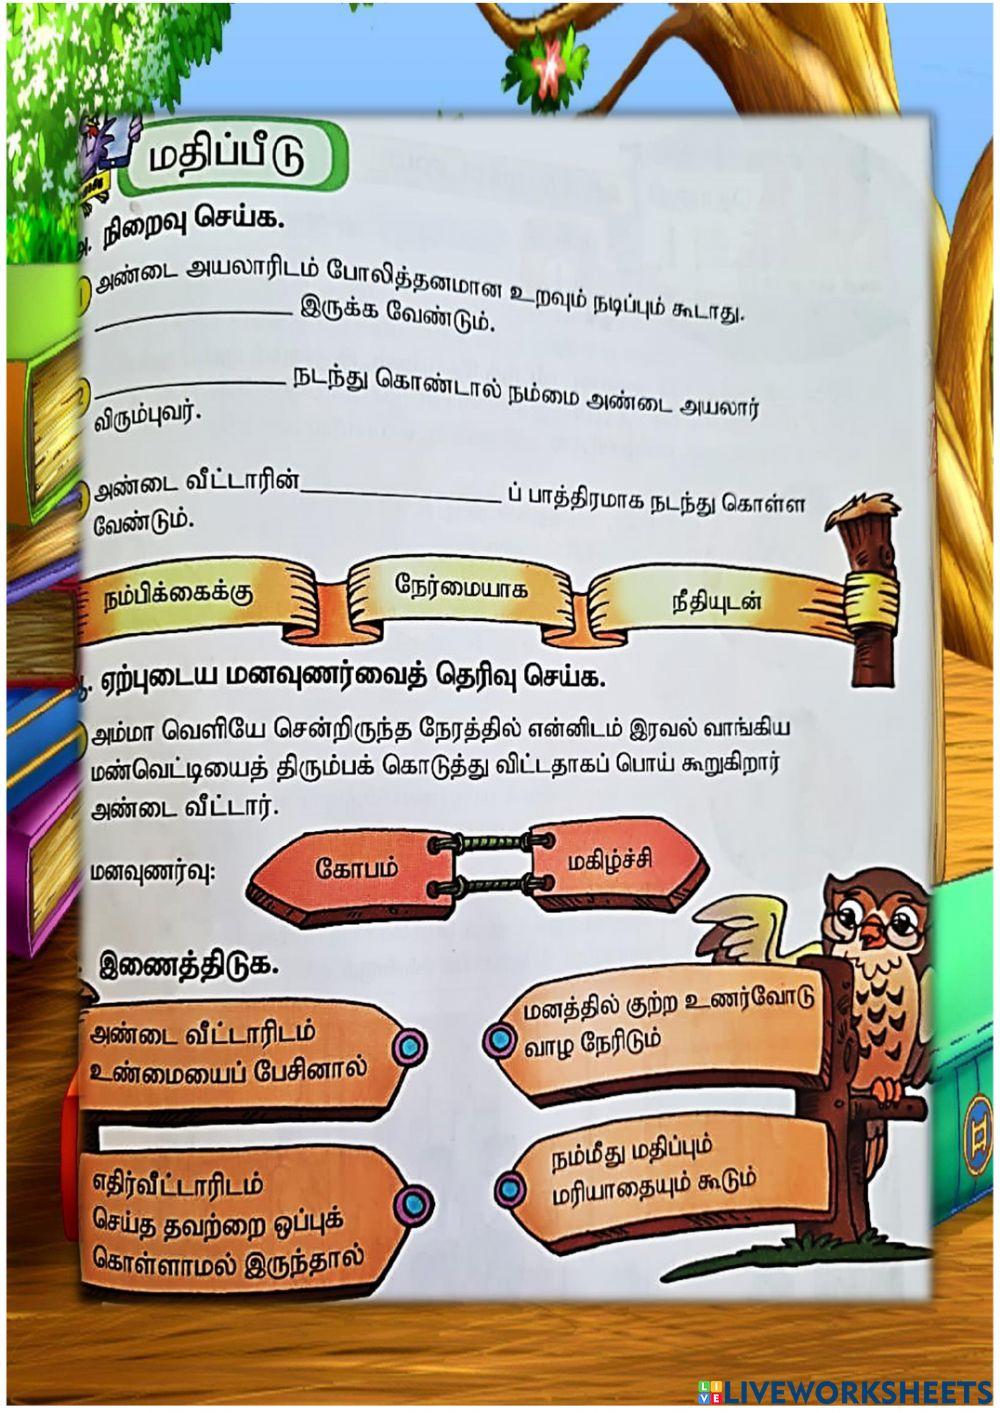 மதிப்பீடு
அ. நிறைவு செய்க.
1 அண்டை அயலாரிடம் போலித்தனமான உறவும் நடிப்பும் கூடாது.
____________ இருக்க வேண்டும்.
2 ____________ நடந்து கொண்டால் நம்மை அண்டை அயலார்
விரும்புவர்.
3 அண்டை வீட்டாரின்____________ ப் பாத்திரமாக நடந்து கொள்ள
வேண்டும்.
நம்பிக்கைக்கு
நேர்மையாக
நீதியுடன்
ஏற்புடைய மனவுணர்வைத் தெரிவு செய்க.
அம்மா வெளியே சென்றிருந்த நேரத்தில் என்னிடம் இரவல் வாங்கிய
மண்வெட்டியைத் திரும்பக் கொடுத்து விட்டதாகப் பொய் கூறுகிறார்
அண்டை வீட்டார்.
மனவுணர்வு:
கோபம்
மகிழ்ச்சி
இணைத்திடுக.
அண்டை வீட்டாரிடம்
உண்மையைப் பேசினால்
மனத்தில் குற்ற உணர்வோடு
வாழ நேரிடும்
எதிர்வீட்டாரிடம்
செய்த தவற்றை ஒப்புக்
கொள்ளாமல் இருந்தால்
நம்மீது மதிப்பும்
மரியாதையும் கூடும்
LIVE LIVEWORKSHEETS